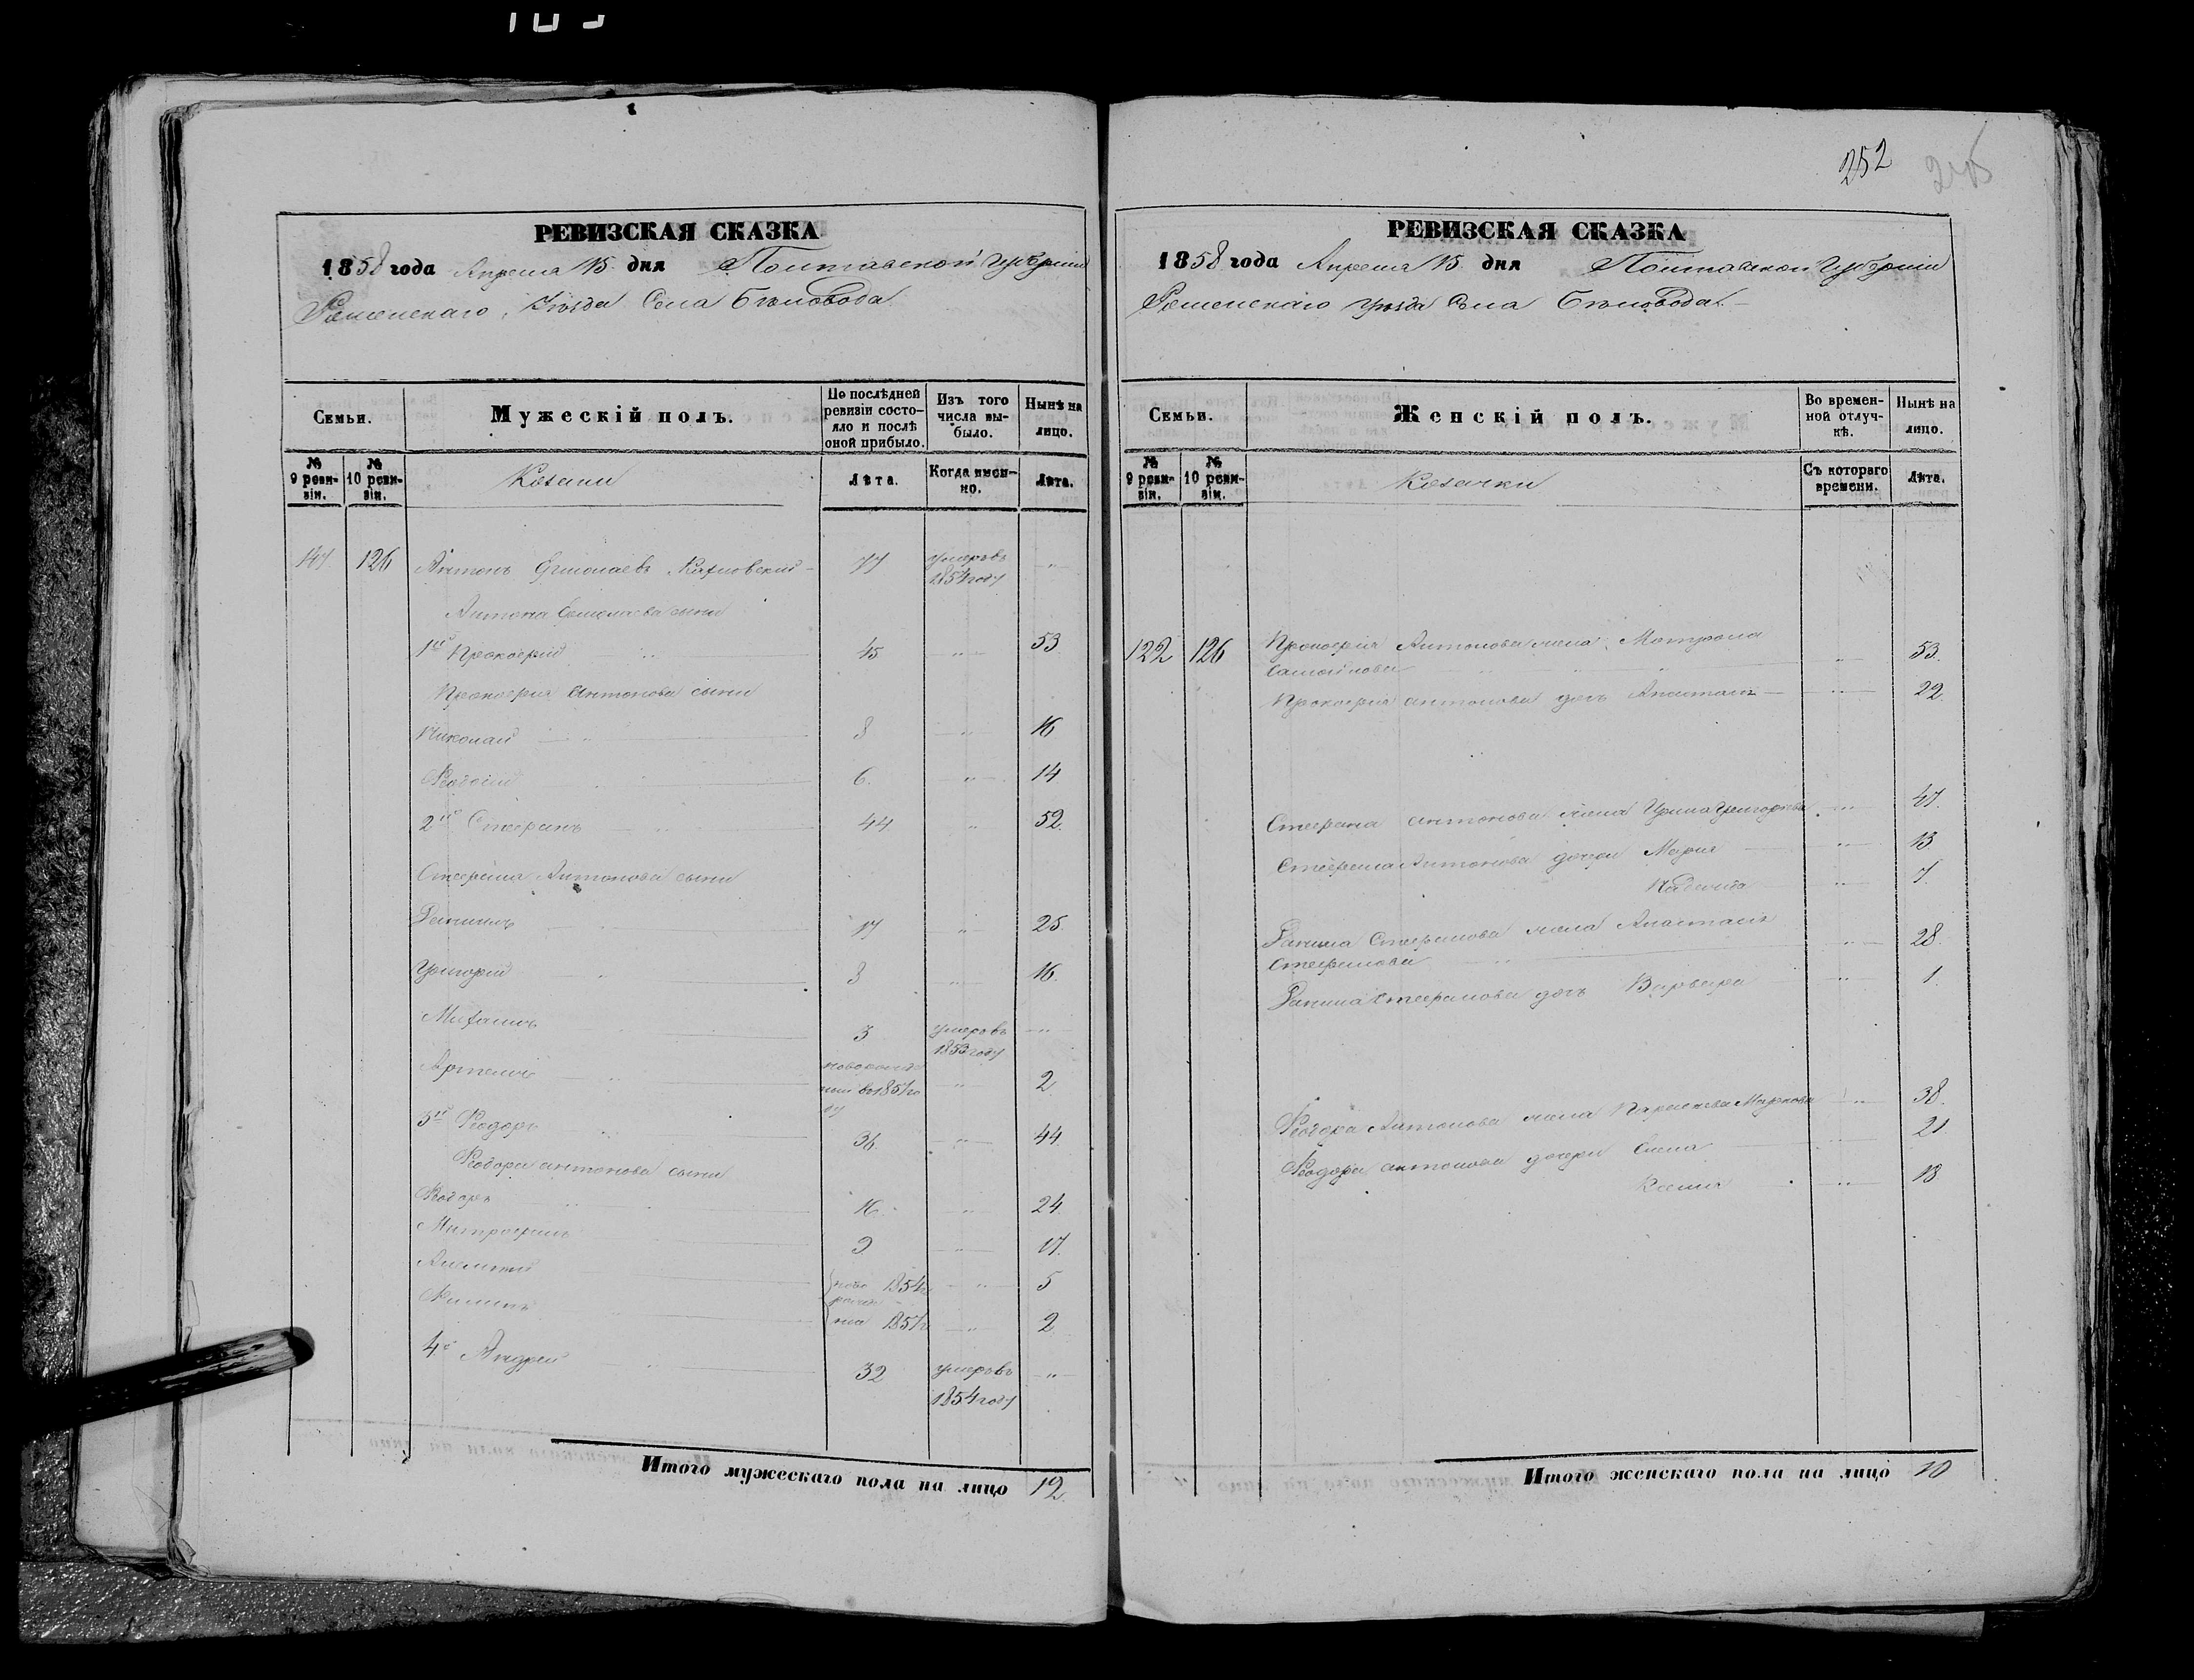 252
245
РЕВИЗСКАЯ СКАЗКА
1858 года Апреля 15 дня Полтавской Губернии
Роменскаго Уѣзда Села Бѣловода
Семьи.
Мужескій полъ.
По послѣдней ревизіи состояло и послѣ оной прибыло.
Изъ того числа выбыло.
Нынѣ на лицо.
№ 9 ревизіи.
№ 10 ревизіи.
Козаки
Лѣта.
Когда именно.
Лѣта.
147 126 Антонъ 77 умеръ въ 1854 году
Антона сыны
1й Прокофій 45 53
Прокофія Антонова сыны
Николай 8 16
Феодосій 6 14
2й Стефанъ 44 52
Стефана Антонова сыны
Данiилъ 17 25
Григорій 8 16
Михаилъ 3 умеръ въ 1853 году
Артемъ новорожденный въ 1857 году 2
3й Феодоръ 36 44
Феодора Антонова сыны
Феодоръ 16 24
Митрофанъ 9 17
ново 1854 5
Филипъ рожден 1857 2
4й Андрей 32 умеръ въ 1854 году
Итого мужескаго пола на лицо 12
РЕВИЗСКАЯ СКАЗКА
1858 года Апреля 15 дня Полтавской Губерніи
Роменскаго Уѣзда Села Бѣловода
Семьи.
Женскій полъ.
Во временной отлучкѣ.
Нынѣ на лицо.
№ 9 ревизіи.
№ 10 ревизіи.
Козачки
Съ котораго времени.
Лѣта.
122 126 Прокофія Антонова жена Матрона
Самойлова 53
Прокофія Антонова дочь Анастасія 22
Стефана Антонова жена Ирина Григорьева 47
Стефана Антонова дочери Марія 13
7
Данiила Стефанова жена Анастасія
Стефанова 28
Данiила Стефанова дочь Варвара 1
Феодора Антонова жена Параскева Маркова 38
Феодора Антонова дочери Елена 21
Ксенія 18
Итого женскаго пола на лицо 10